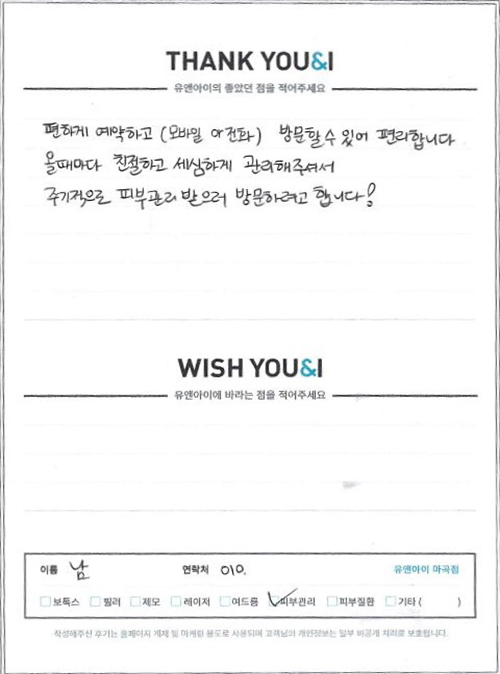 THANK YOU&I
유앤아이의 좋았던 점을 적어주세요
편하게 예약하고 (모바일 or 전화) 방문할 수 있어 편리합니다
올때마다 친절하고 세심하게 관리해주셔서
주기적으로 피부관리 받으러 방문하려고 합니다!
WISH YOU&I
유앤아이에 바라는 점을 적어주세요
이름 남 연락처 010. 유앤아이 마곡점
보톡스 필러 제모 레이저 여드름 피부관리 피부질환 기타 ( )
작성해주신 후기는 홈페이지 게재 및 마케팅 용도로 사용되며 고객님의 개인정보는 일부 비공개 처리로 보호됩니다.